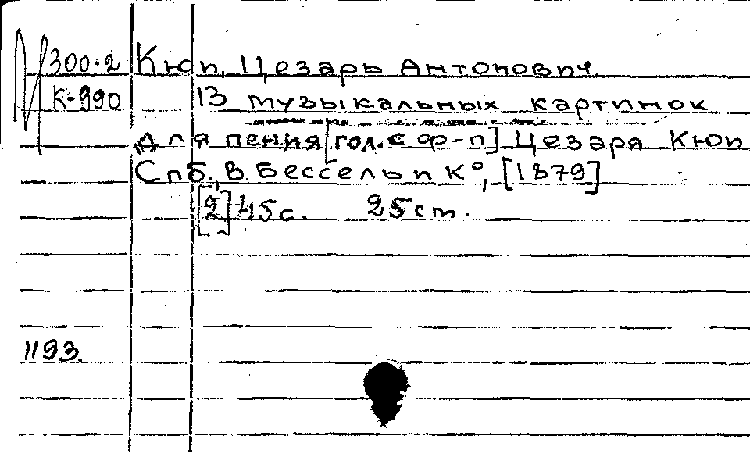 М 300.2 Кюи, Цезарь Антонович.
К-990 13 музыкальных картинок
для пения [гол. с ф-п] Цезаря Кюи
Спб. В. Бессель и К°, [1879]
[2] 45 с. 25 ст.
1193.